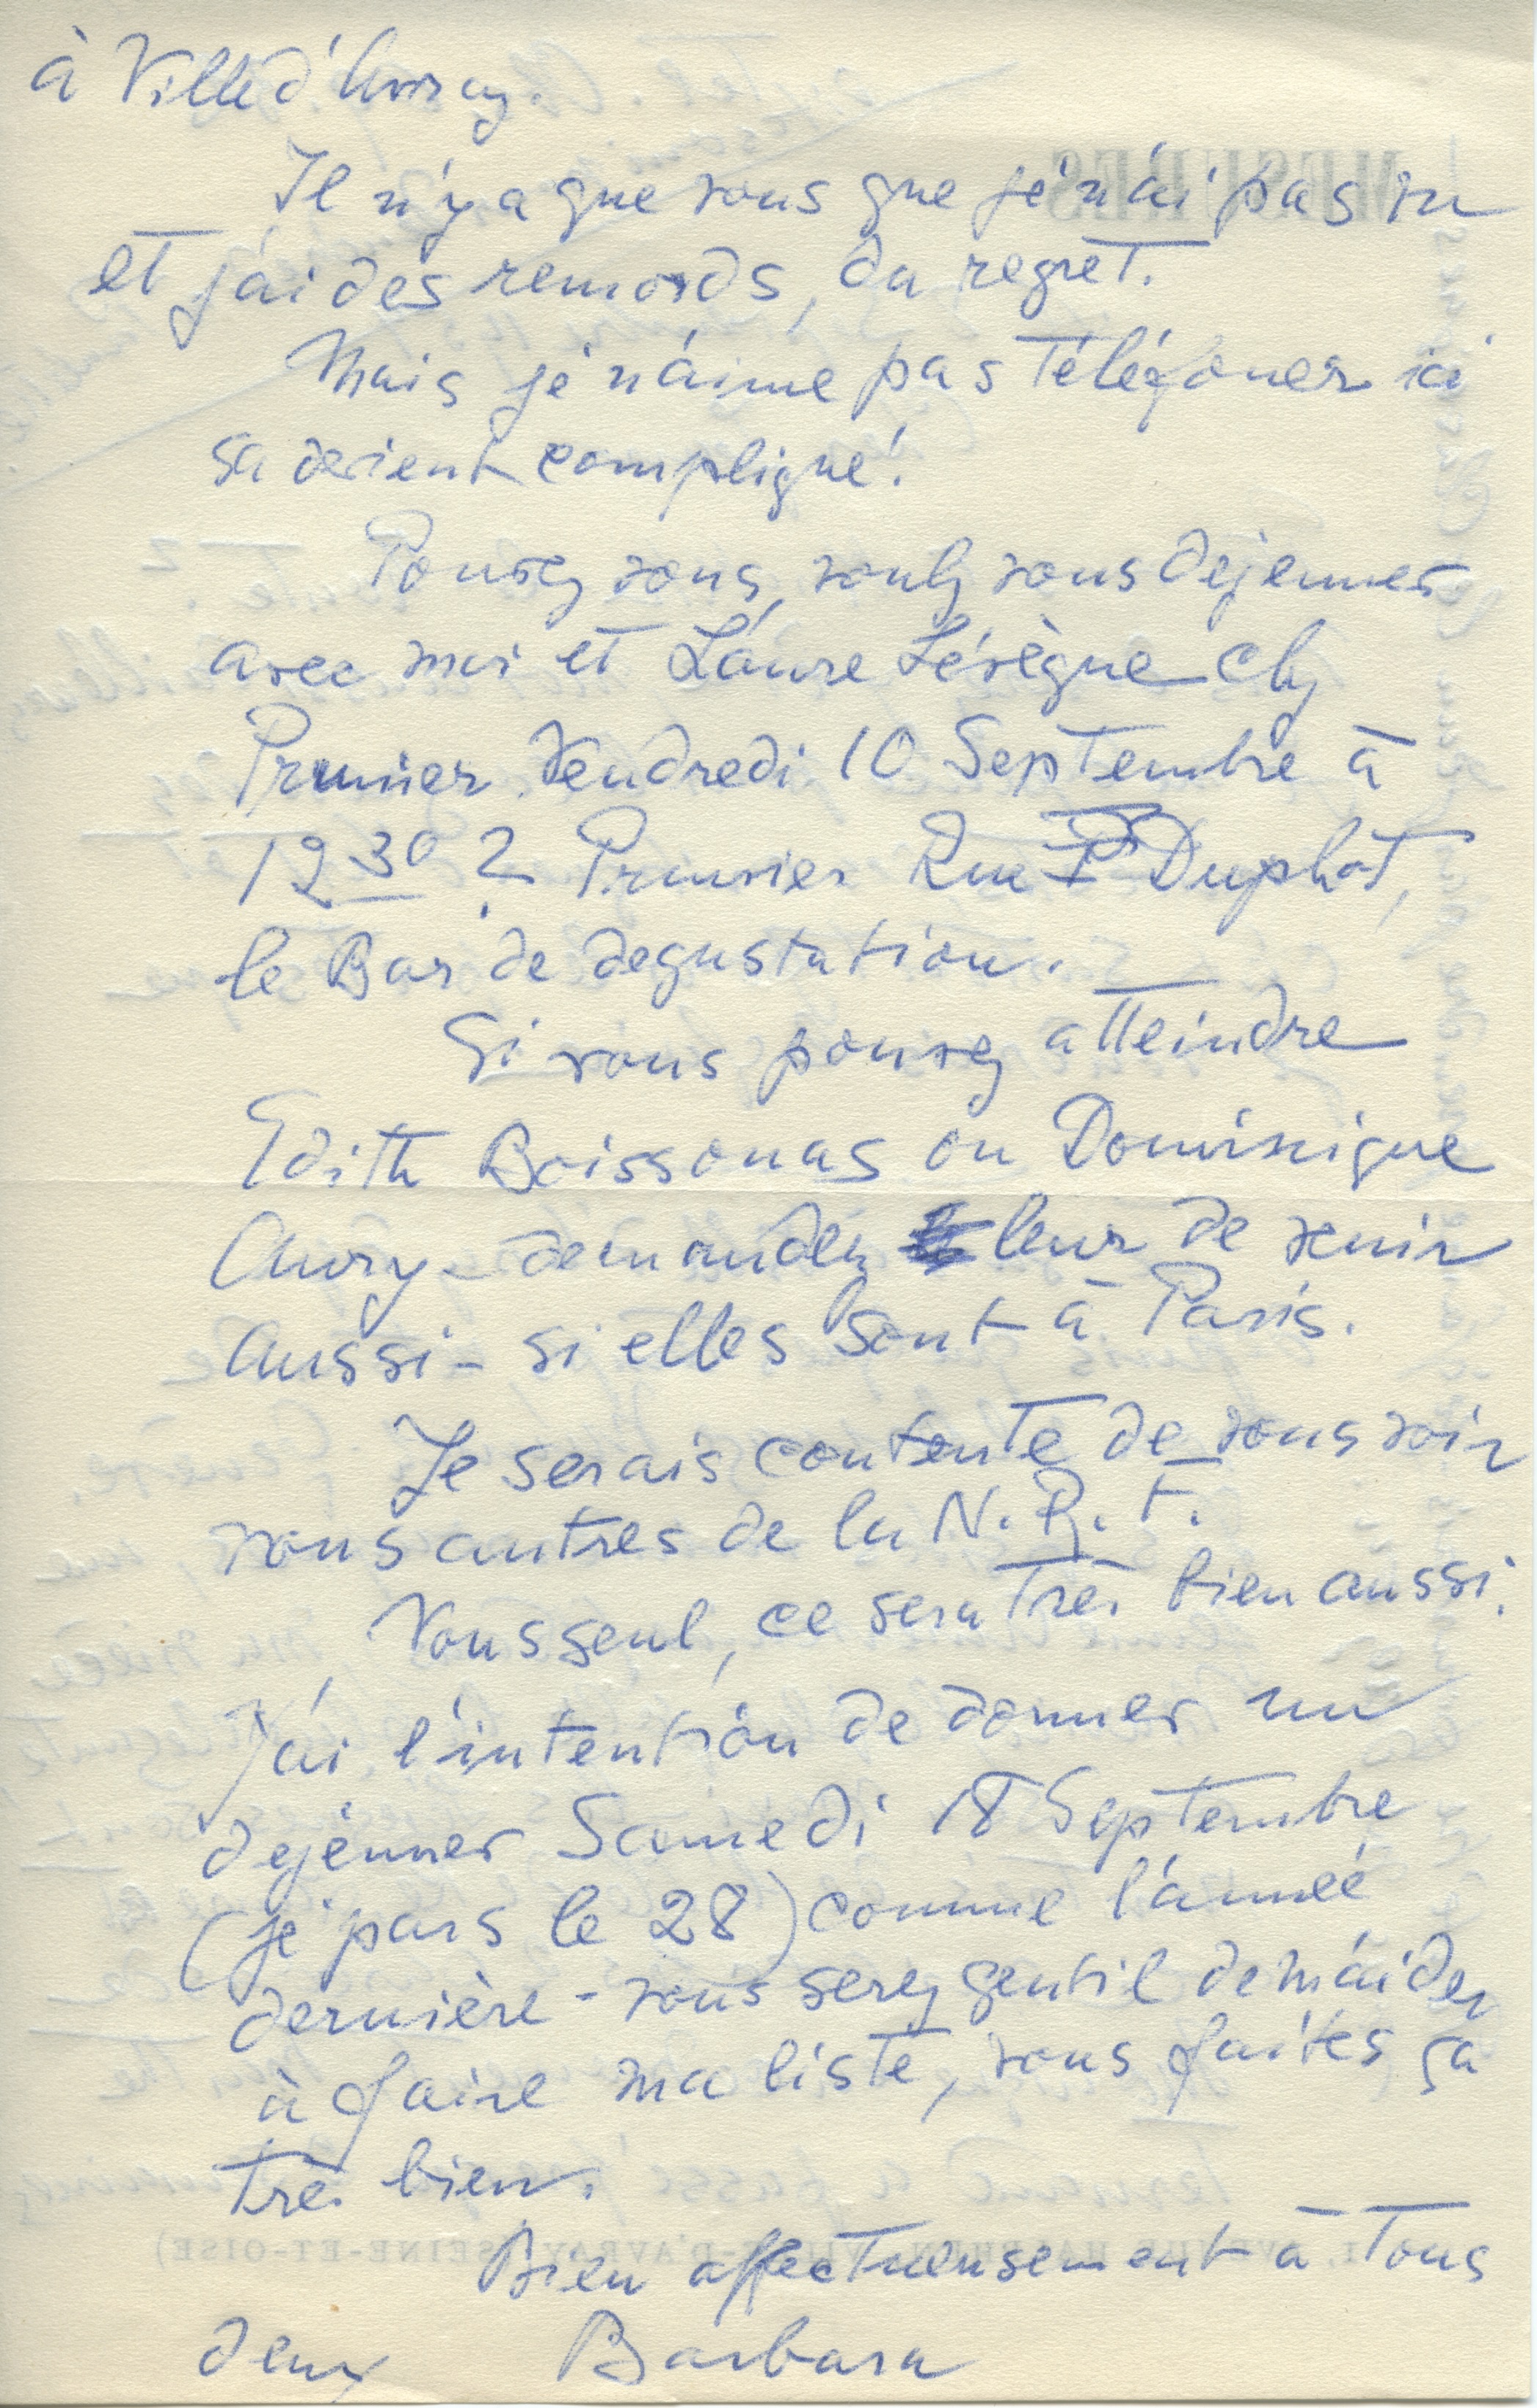 à Ville d'Avray.
Il n'y a que vous que je n'ai pas vu
et j'ai des remords, du regret.
Mais je n'aime pas téléfoner ici
sa devient compliqué!
Pouvez vous, voulz vous dejeuner
avec moi et Laure Lévèque chz
Prunier Vendredi 10 Septembre à
12 30 ? Prunier Rue Duphot,
le Bar de degustation.
Si vous pouvez atteindre
Edith Boissonas ou Dominique
Aury - demandez leur de venir
aussi - si elles sont à Paris.
Je serais contente de vous voir
vous autres de la N.R.F.
Vous seul, ce sera très bien aussi.
J'ai l'intention de donner un
dejeuner Samedi 18 Septembre
(je pars le 28) comme l'année
dernière - vous serez gentil de m'aider
à faire ma liste, vous faites ça
très bien.
Bien affectueusement à tous
deux Barbara
MESURES
1, AVENUE HALPHEN, VILLE-D'AVRAY (SEINE-ET-OISE)